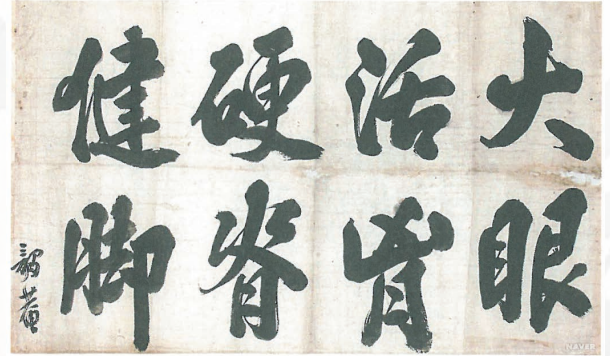 大眼
活胷
硬脊
健脚
NAVER